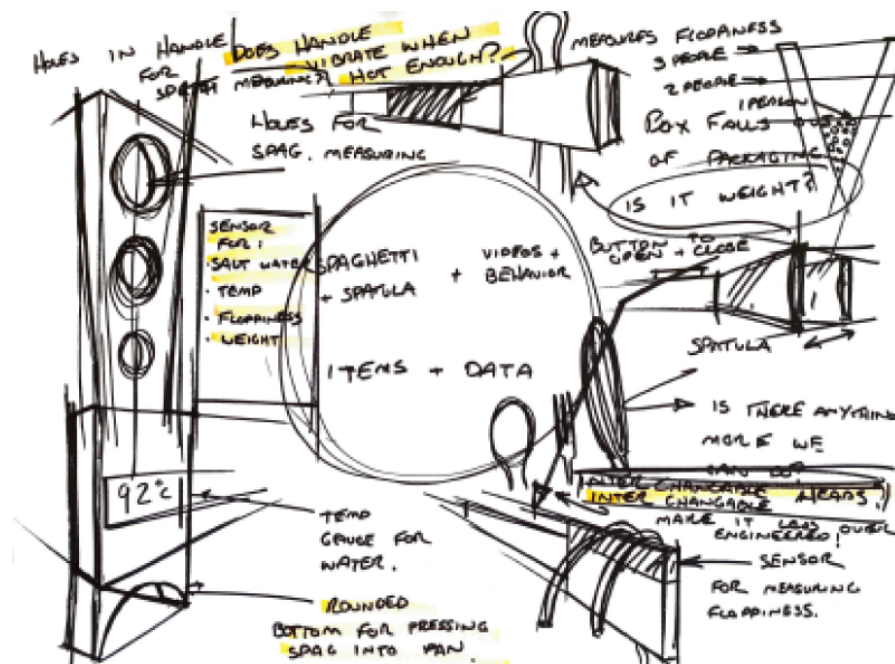 HOLES IN HANDLE
FOR
SPAGH MEASURING
DOES HANDLE
VIBRATE WHEN
HOT ENOUGH?
HOLES FOR
SPAG. MEASURING
MEASURES FLOPPINESS
3 PEOPLE
2 PEOPLE
1 PERSON
BOX FALLS
OF PACKAGING
IS IT WEIGHT?
SENSOR
FOR:
· SALT WATER
· TEMP
· FLOPPINESS
· WEIGHT
SPAGHETTI
+ SPATULA
+ VIDEOS +
BEHAVIOR
ITEMS + DATA
BUTTON TO
OPEN + CLOSE
SPATULA
IS THERE ANYTHING
MORE WE
CAN DO?
INTERCHANGABLE HEADS!
INTER CHANGABLE
MAKE IT LESS OVER
ENGINEERED!
SENSOR
FOR MEASURING
FLOPPINESS.
92°C
TEMP
GAUGE FOR
WATER.
ROUNDED
BOTTOM FOR PRESSING
SPAG INTO PAN.